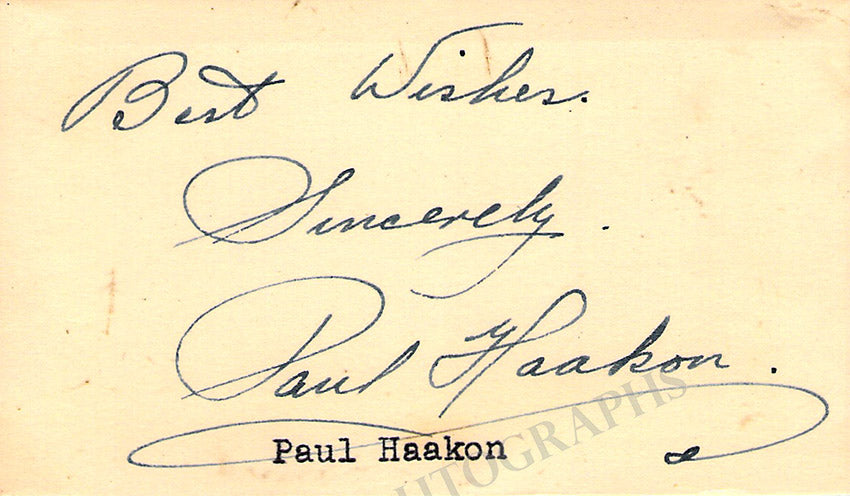 Best Wishes.
Sincerely.
Paul Haakon.
Paul Haakon
UTOGRAPHS